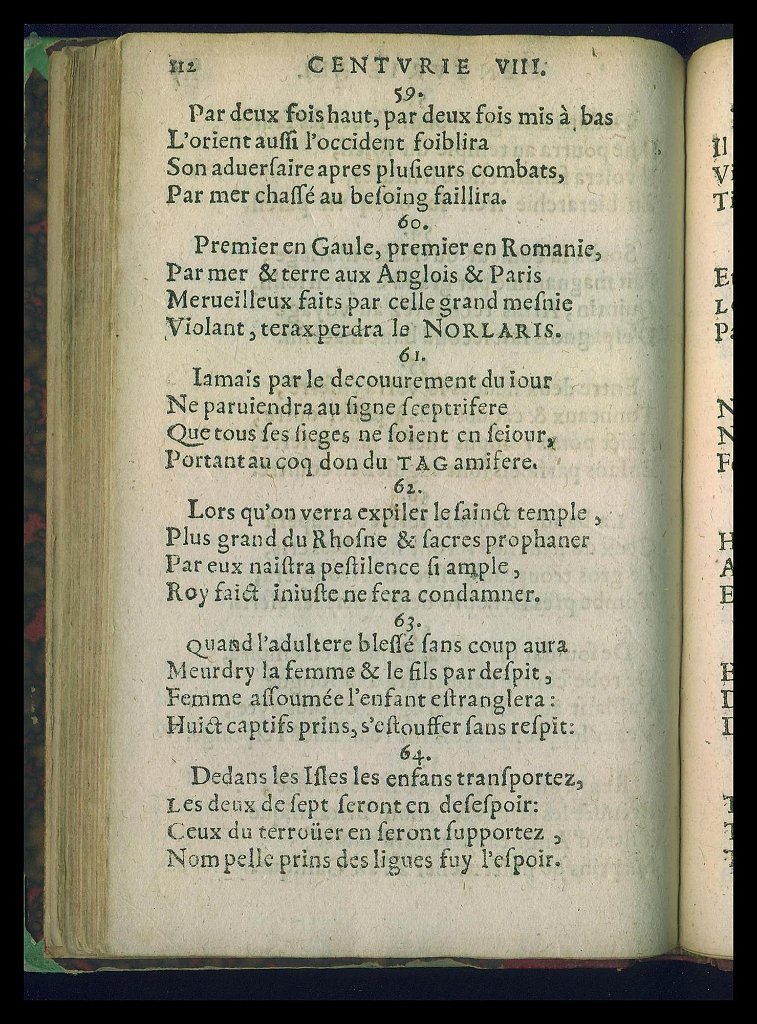 112 CENTVRIE VIII.
59.
Par deux fois haut, par deux fois mis à bas
L'orient auſſi l'occident foiblira
Son aduerſaire apres pluſieurs combats,
Par mer chaſſé au beſoing faillira.
60.
Premier en Gaule, premier en Romanie,
Par mer & terre aux Anglois & Paris
Merueilleux faits par celle grand meſnie
Violant, terax perdra le NORLARIS.
61.
Iamais par le decouurement du iour
Ne paruiendra au ſigne ſceptrifere
Que tous ſes ſieges ne ſoient en ſeiour,
Portant au coq don du TAG amifere.
62.
Lors qu'on verra expiler le ſainct temple,
Plus grand du Rhoſne & ſacres prophaner
Par eux naiſtra peſtilence ſi ample,
Roy faict iniuſte ne fera condamner.
63.
Quand l'adultere bleſſé ſans coup aura
Meurdry la femme & le fils par deſpit,
Femme aſſoumée l'enfant eſtranglera:
Huict captifs prins, s'eſtouffer ſans reſpit:
64.
Dedans les Iſles les enfans tranſportez,
Les deux de ſept ſeront en deſeſpoir:
Ceux du terroüer en ſeront ſupportez,
Nom pelle prins des ligues fuy l'eſpoir.